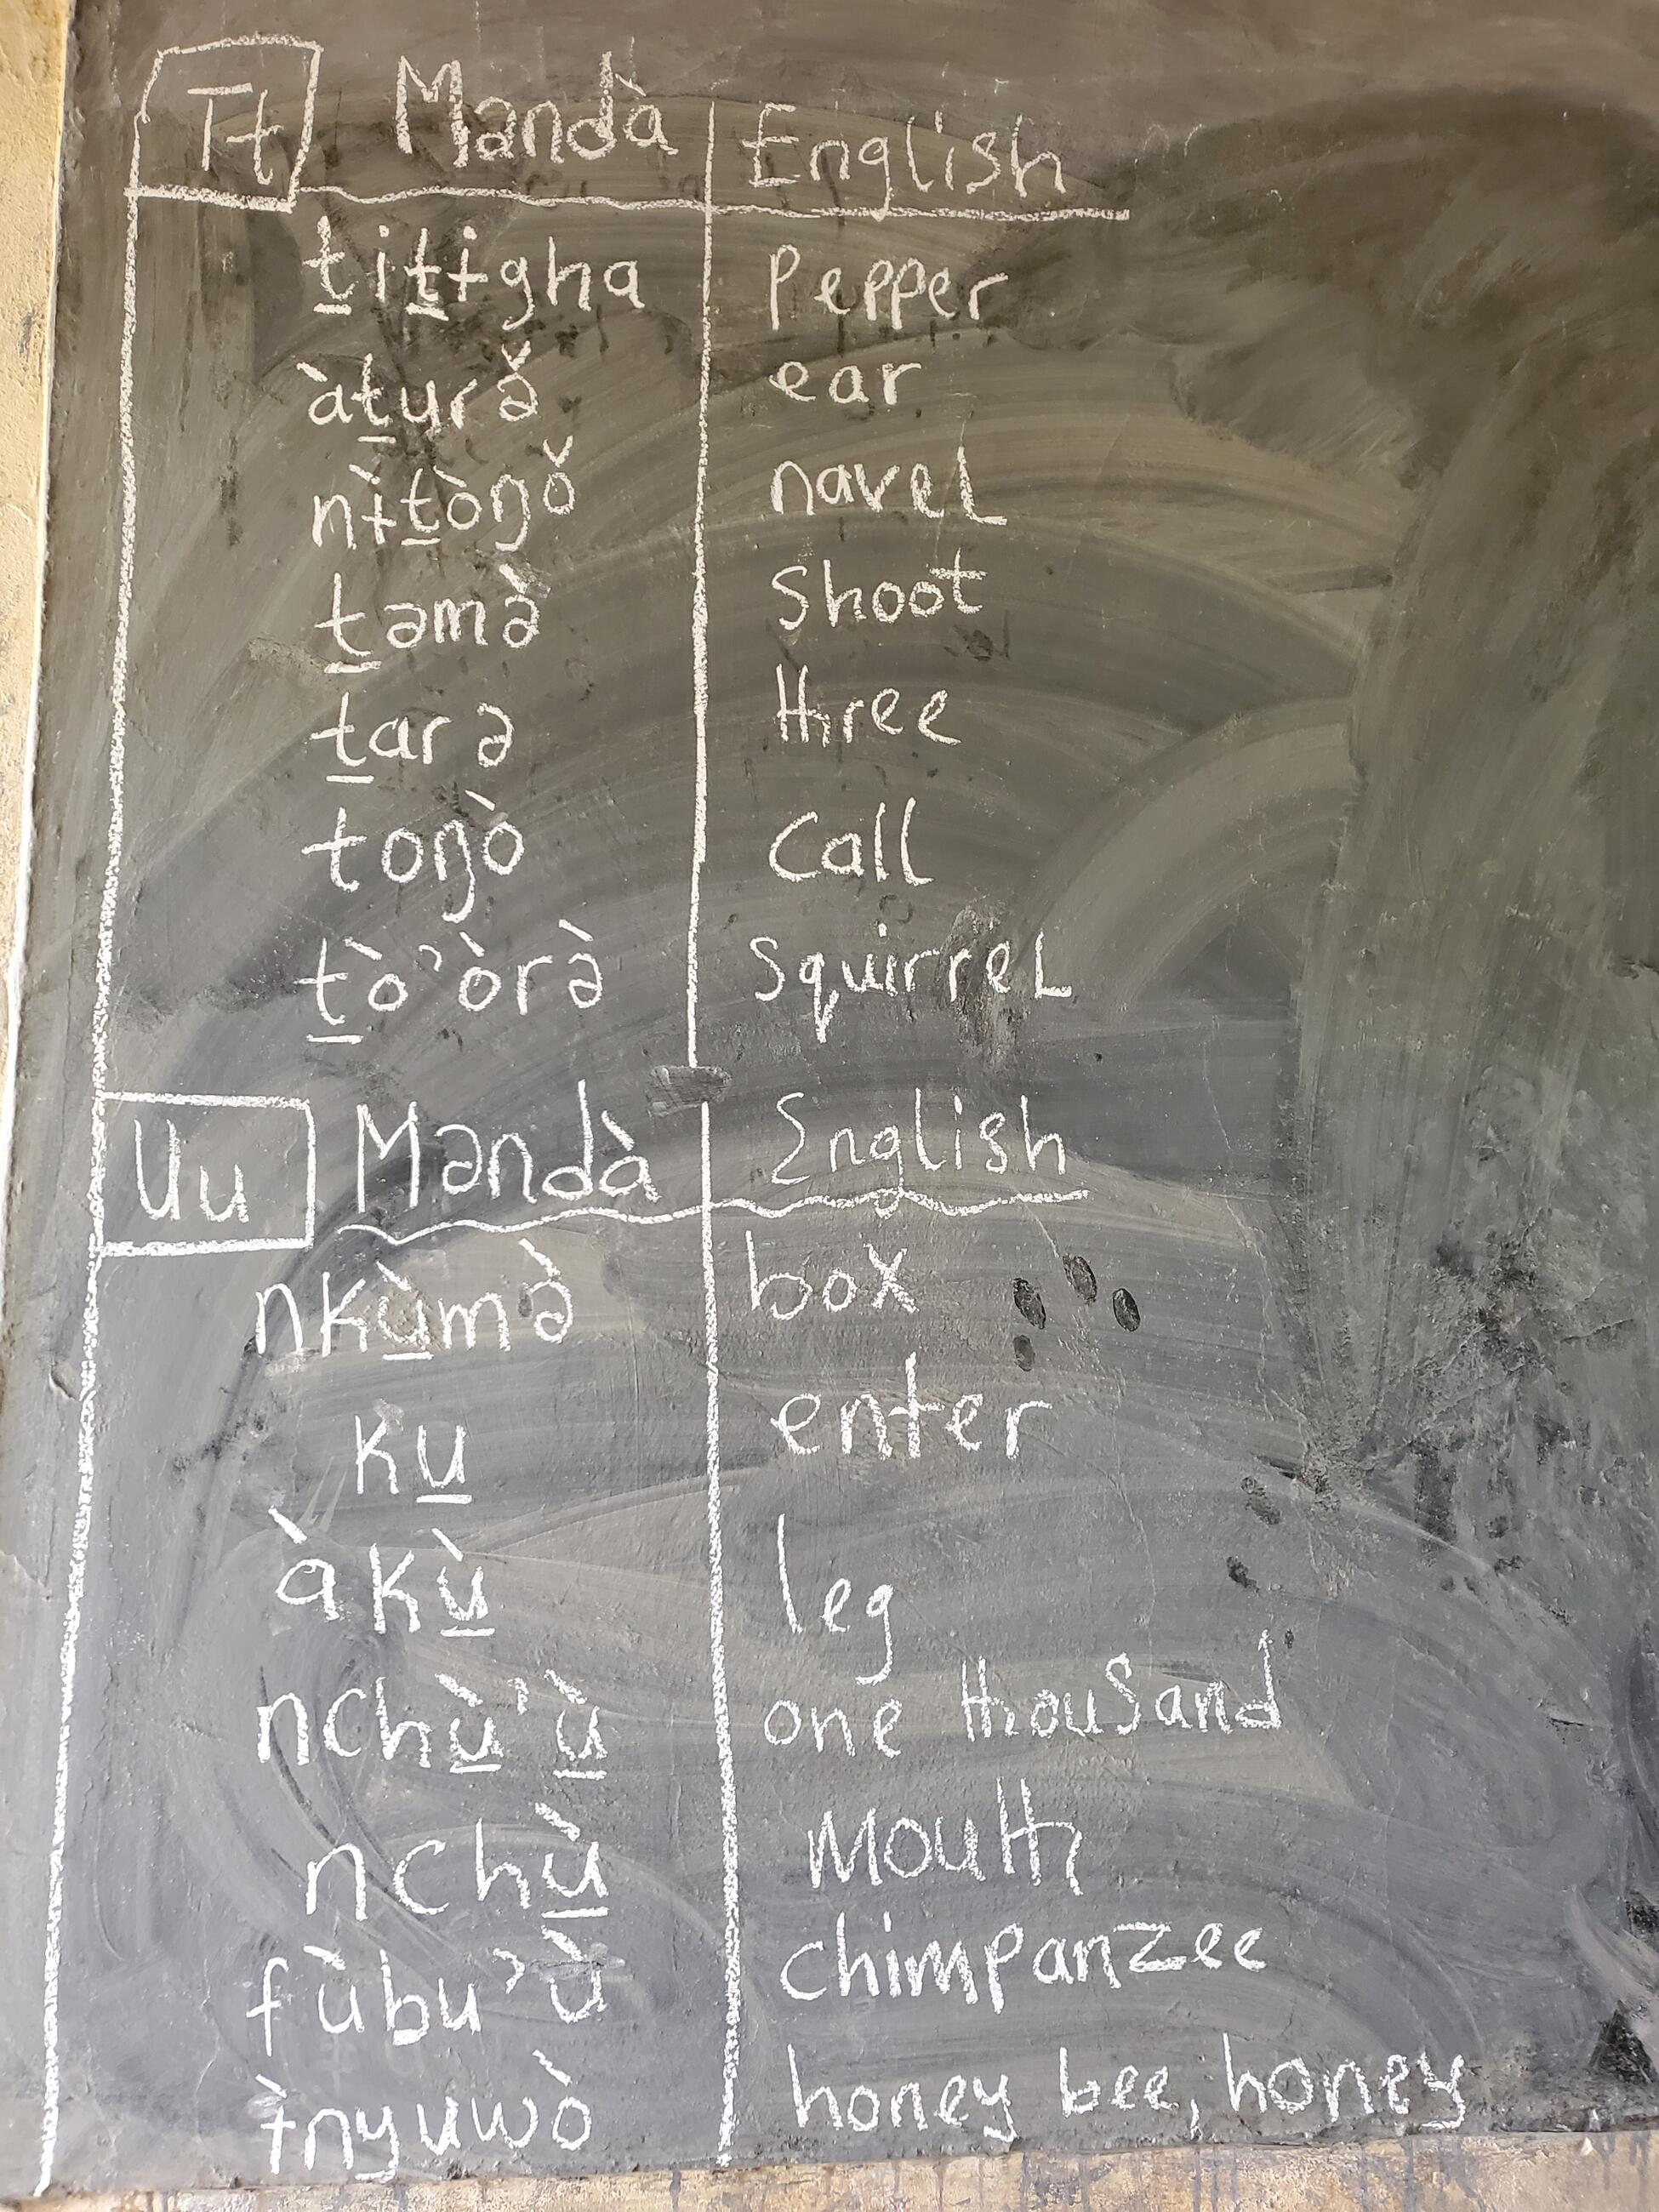 Tt Mandà English
ṯiṯɨgha Pepper
àṯurə̌ ear
nɨ̀ṯòŋǒ navel
ṯəmə̀ Shoot
ṯarə three
toŋò Call
ṯò'òrə̀ SquirreL
Uu Məndà English
nkù̱mə̀ box
ku̱ enter
àkù̱ leg
nchù̱'ù̱ one thousand
nchù̱ Mouth
fùbu'ù chimpanzee
ɨ̀nyuwò honey bee, honey